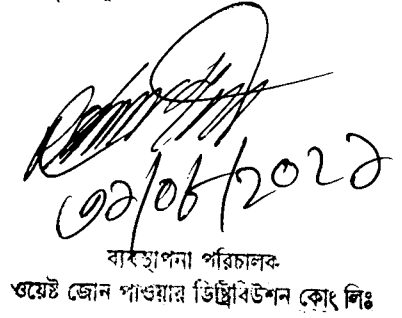 ৩১/০৮/২০২১
ব্যবস্থাপনা পরিচালক
ওয়েষ্ট জোন পাওয়ার ডিষ্ট্রিবিউশন কোং লিঃ